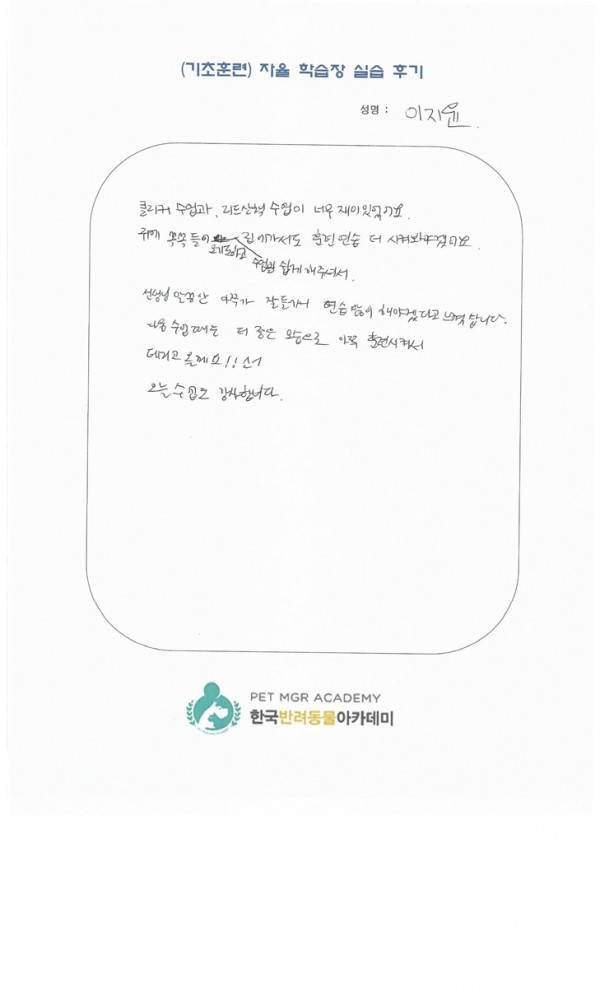 (기초훈련) 자율 학습장 실습 후기
성명 : 이지윤.
클리커 수업과, 리드산책 수업이 너무 재미있었어요.
귀에 쏙쏙 들어오기도하고 수업을 쉽게 해주셔서.
집에가서도 훈련연습 더 시켜봐야겠어요.
선생님 만큼 안 따라가 잘들어서 연습 많이 해야겠다고 느꼈습니다.
다음 수업때는 더 좋은 모습으로 훈련시켜서
데리고 올께요!!
오늘 수업도 감사합니다.
PET MGR ACADEMY
한국반려동물아카데미